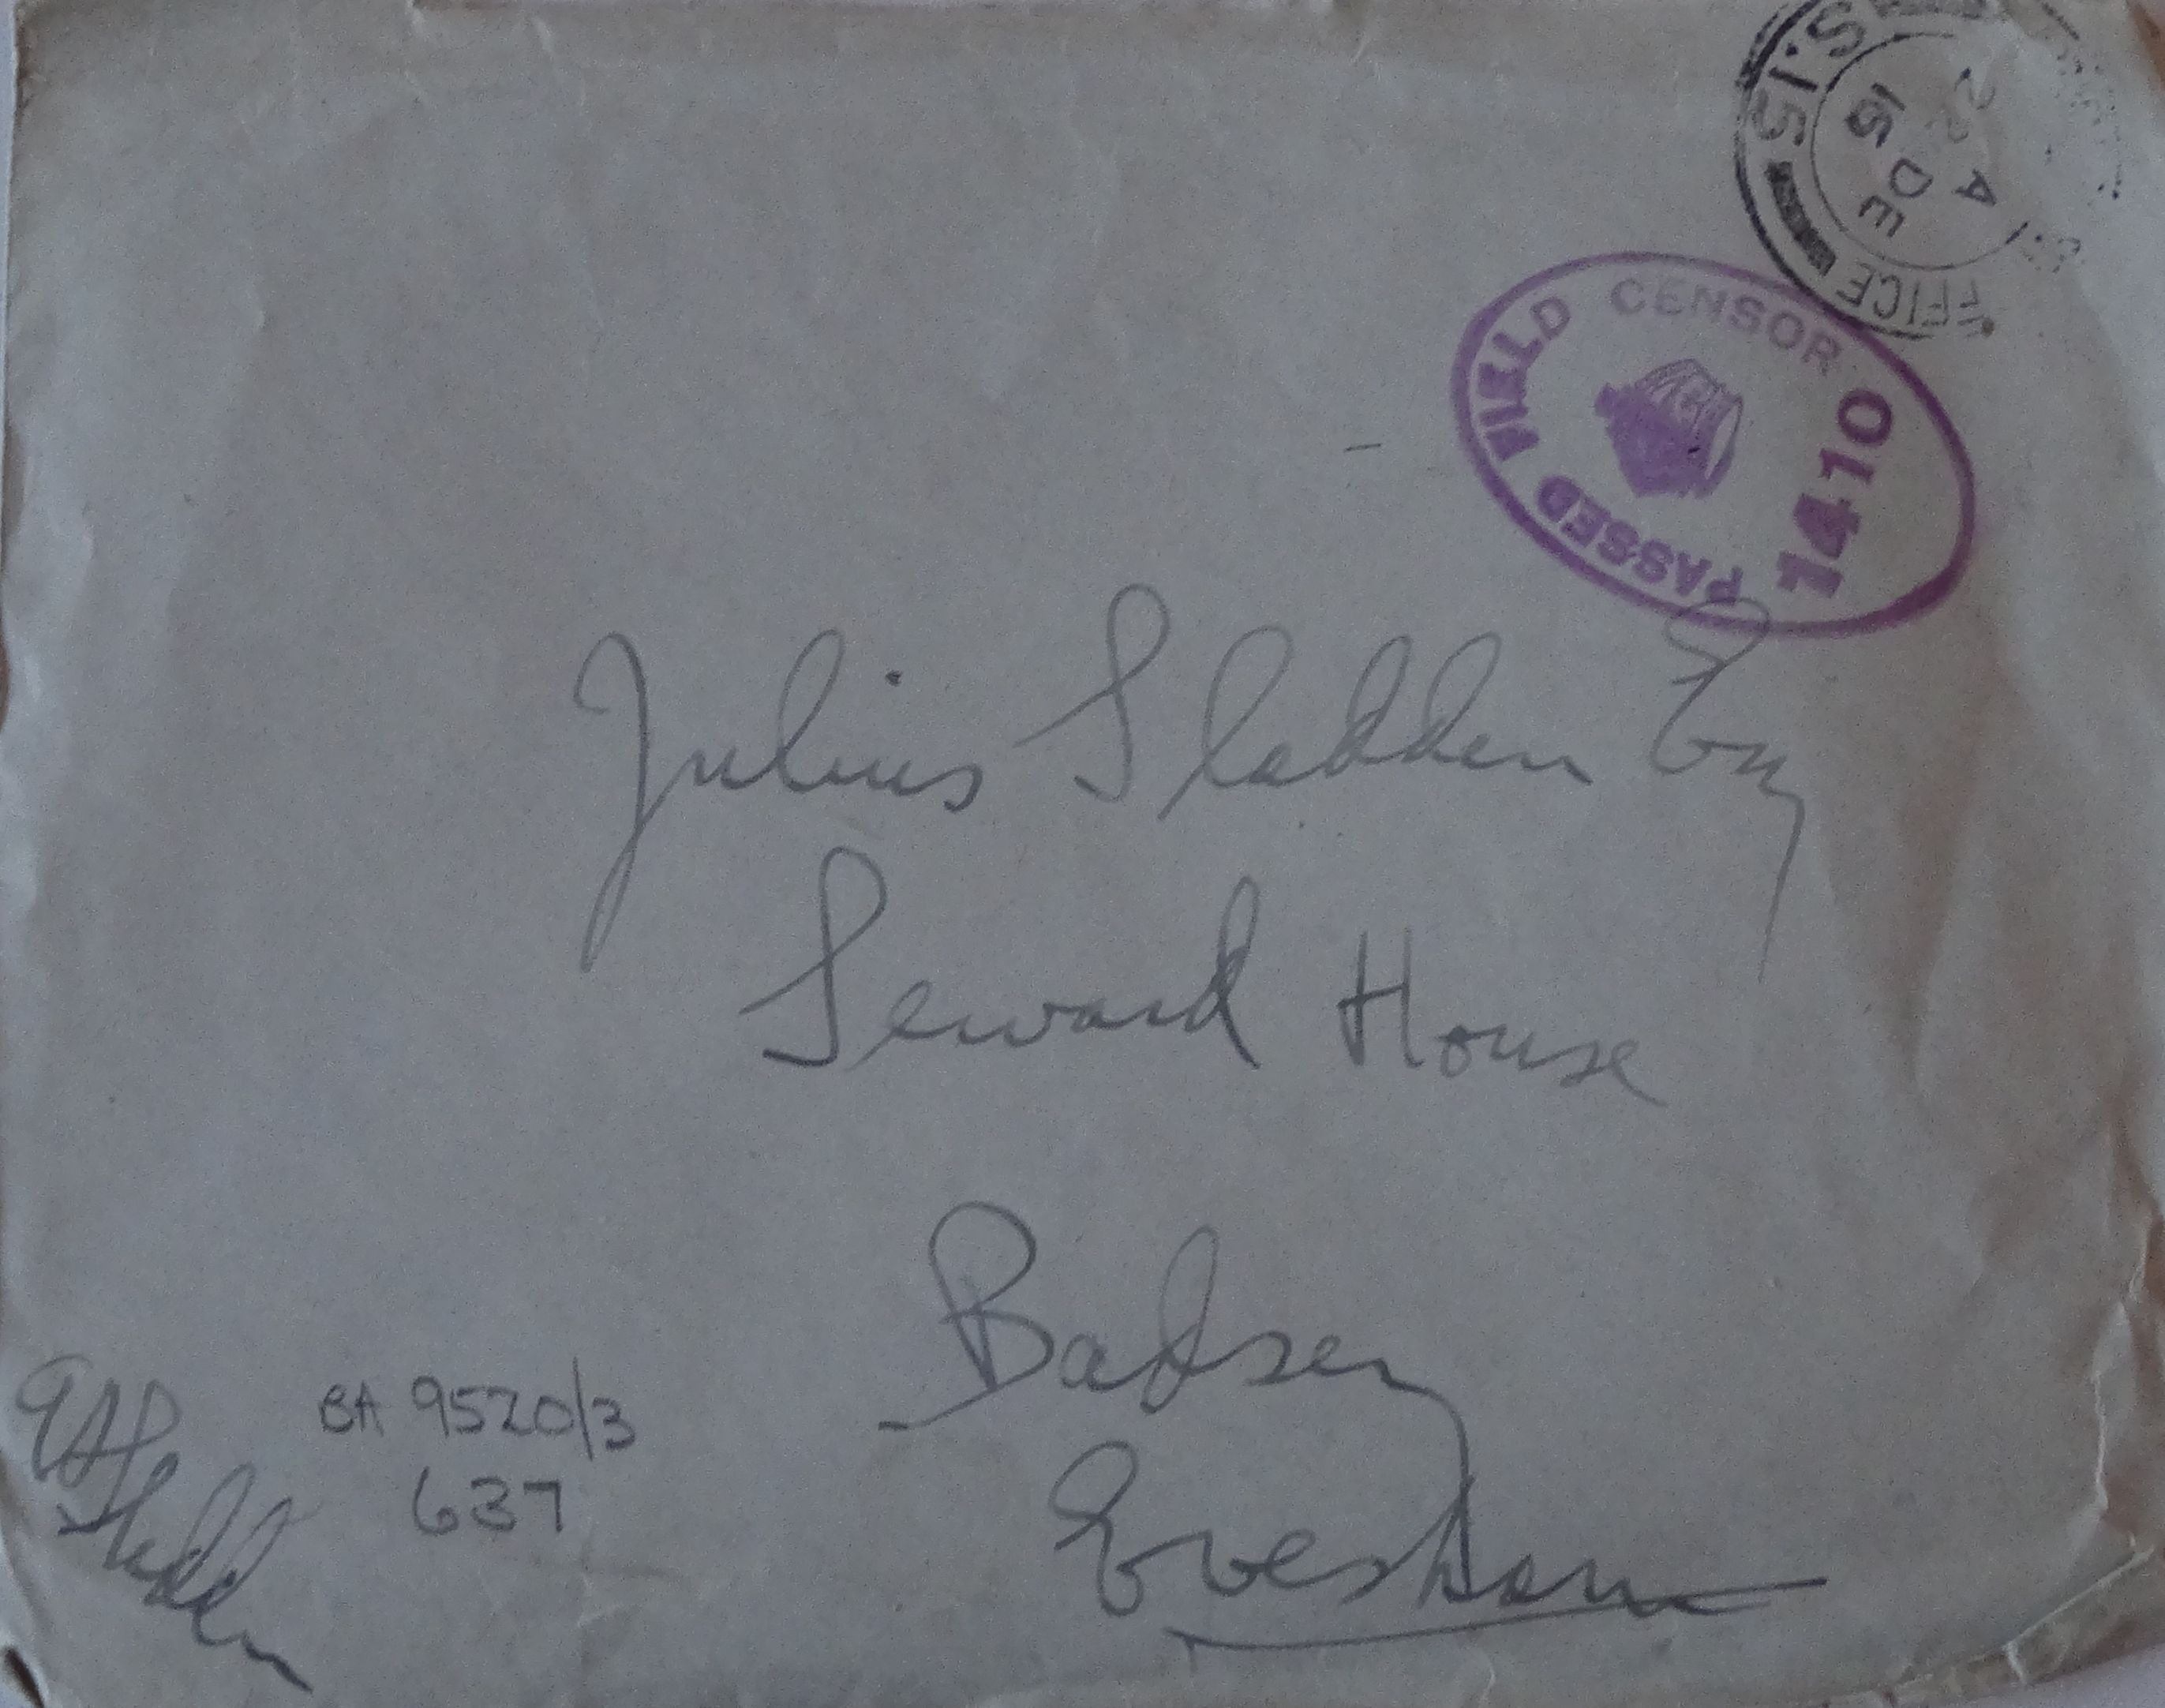 S.15
FFICE
A
15 DE
22
PASSED FIELD CENSOR
1410
Julius Sladden Esq
Seward House
Badsey
Evesham
BA 9520/3
637
Sladden